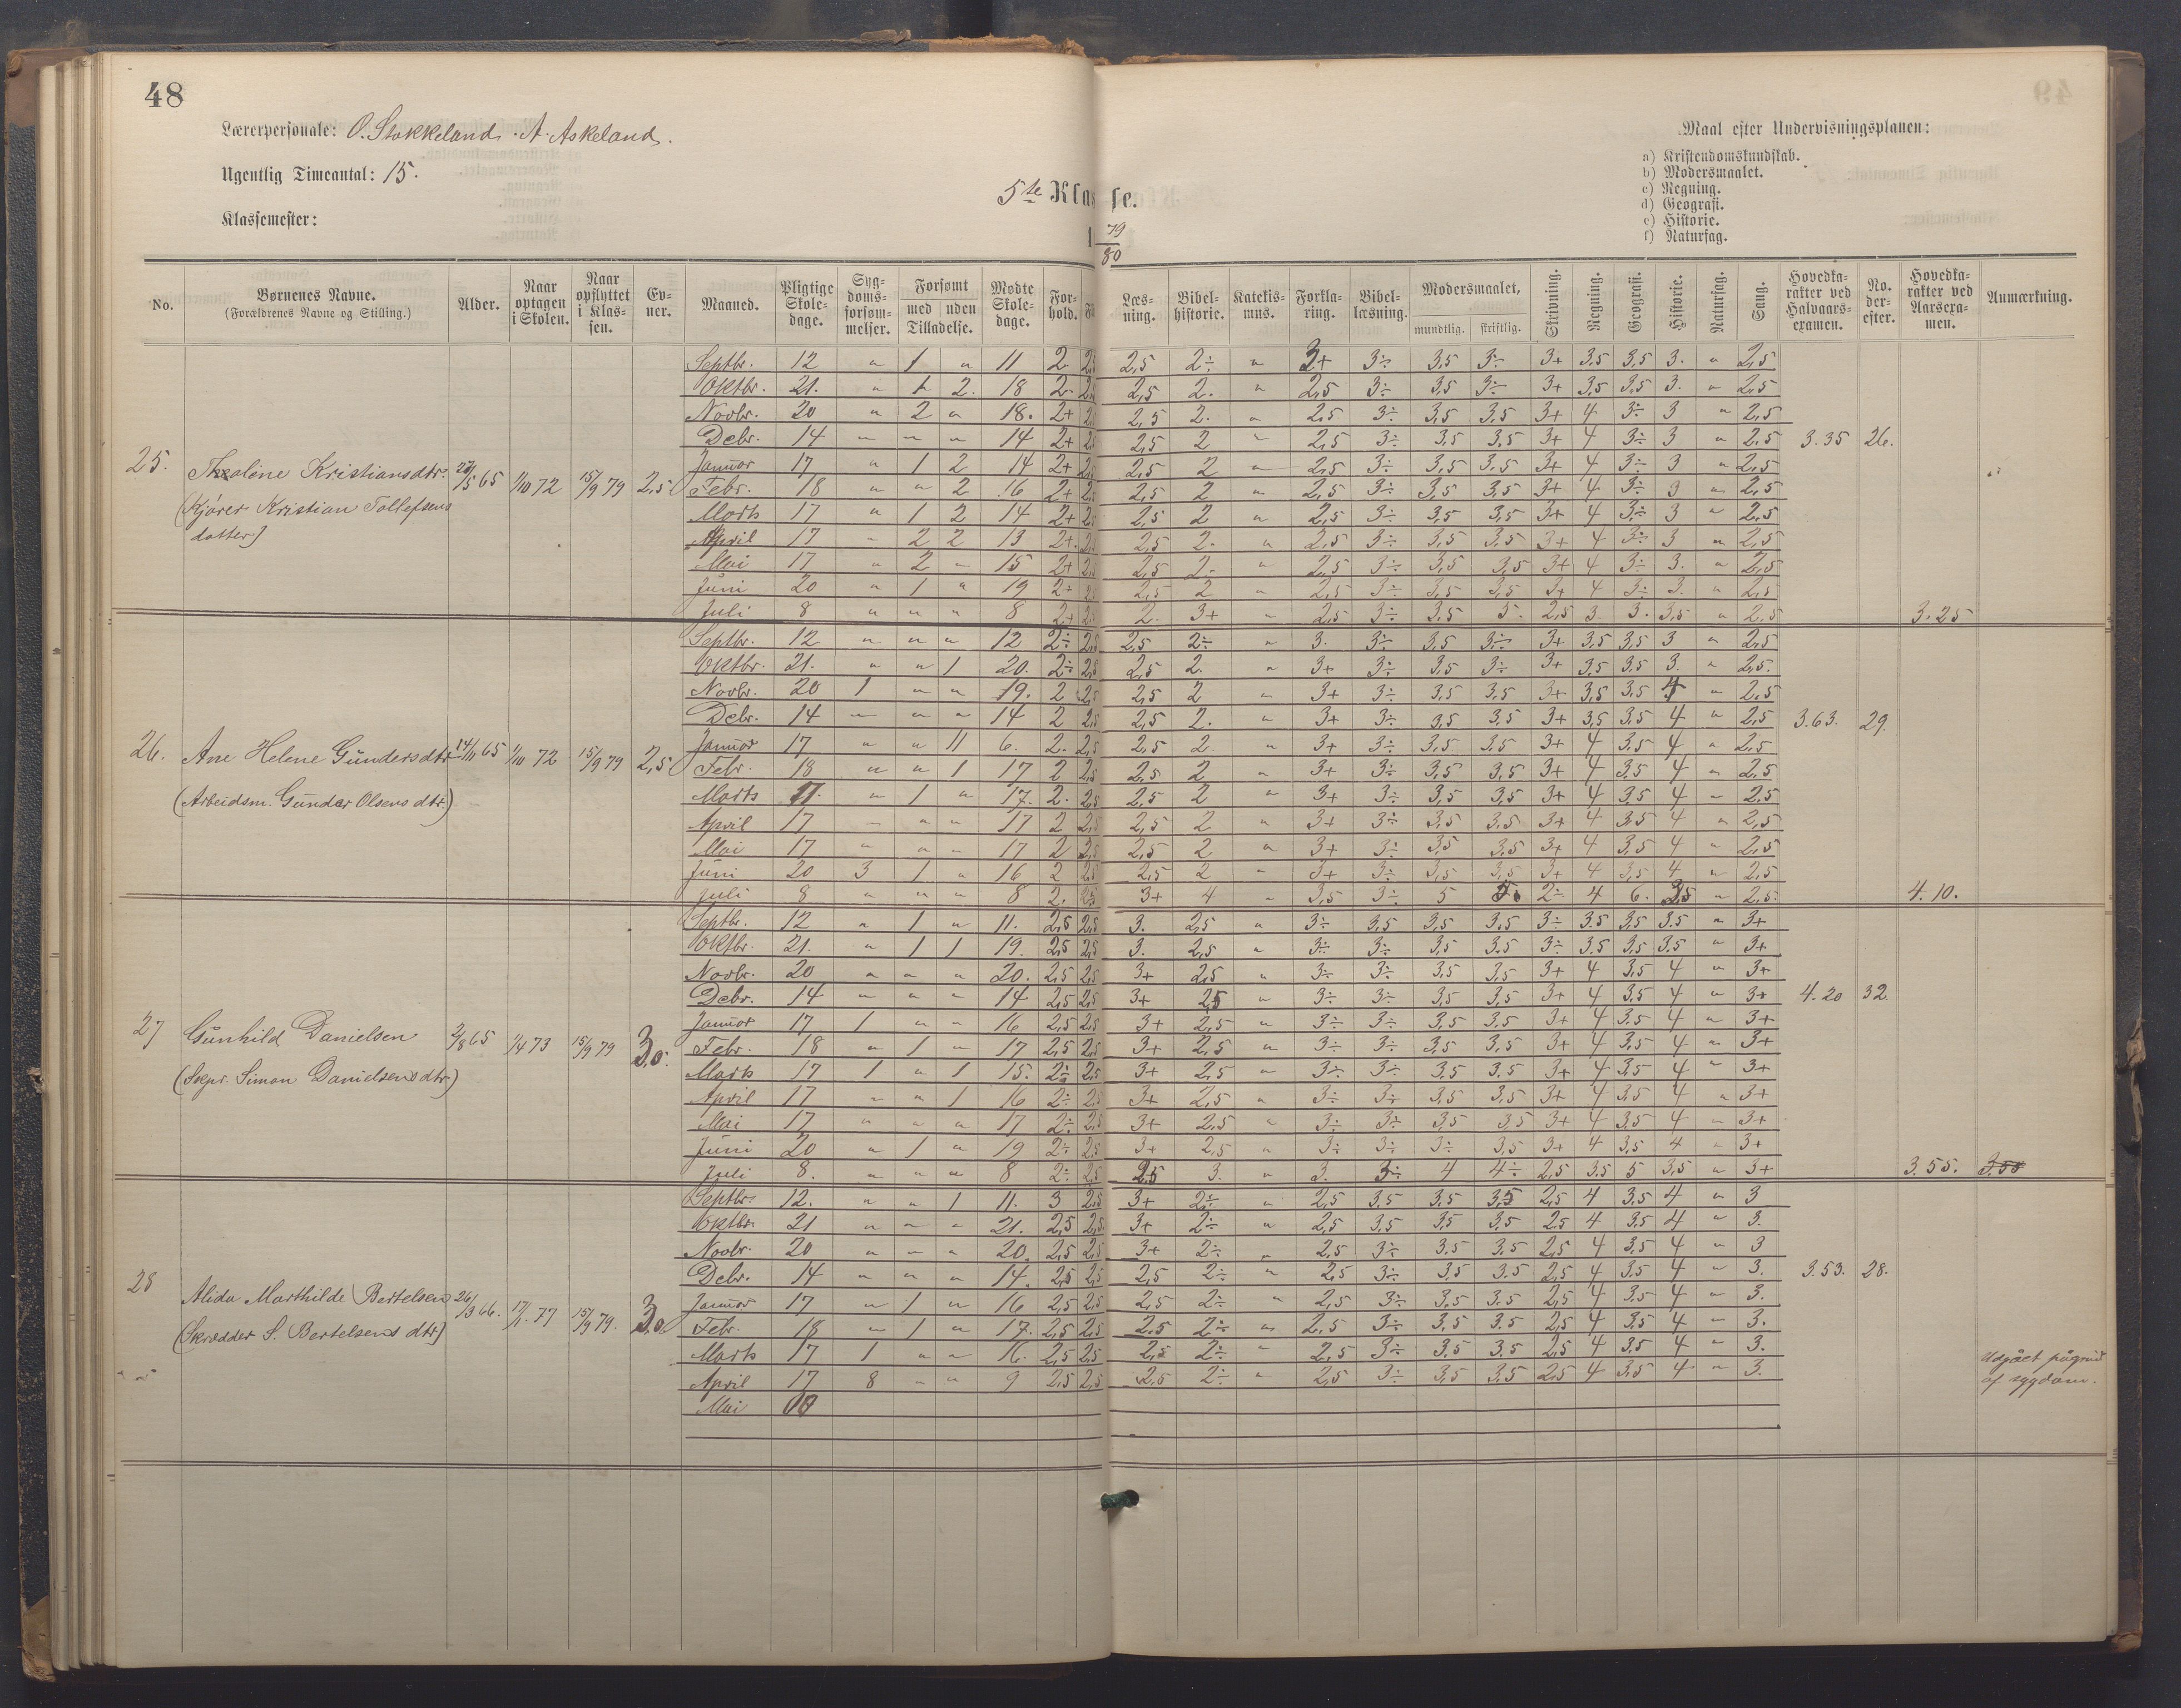 48
Lærerpersonale: O. Stokkeland. A. Askeland.
Ugentlig Timeantal: 15.
Klassemester:
5te Klasse.
79/80
Maal efter Undervisningsplanen:
a) Kristendomskundskab.
b) Modersmaalet.
c) Regning.
d) Geografi.
e) Historie.
f) Naturfag.
No. Børnenes Navne. (Forældrenes Navne og Stilling.) Alder. Naar optagen i Skolen. Naar opflyttet i Klassen. Evner. Maaned. Pligtige Skoledage. Sygdomsforsømmelser. Forsømt med uden Tilladelse. Mødte Skoledage. Forhold. Læsning. Bibelhistorie. Katekismus. Forklaring. Bibellæsning. Modersmaalet, mundtlig. skriftlig. Skrivning. Regning. Geografi. Historie. Naturfag. Sang. Hovedkarakter ved Halvaarsexamen. No. derefter. Hovedkarakter ved Aarsexamen. Anmærkning.
Septbr. 12 " 1 " 11 2 2,5 2,5 2÷ " 3+ 3÷ 3,5 3÷ 3+ 3,5 3,5 3. " 2,5
Oktbr. 21. " 1 2. 18 2 2,5 2,5 2. " 2,5 3÷ 3,5 3÷ 3+ 3,5 3,5 3. " 2,5
Novbr. 20 " 2 " 18. 2+ 2,5 2,5 2. " 2,5 3÷ 3,5 3,5 3+ 4 3÷ 3 " 2,5
Debr. 14 " " " 14 2+ 2,5 2,5 2 " 2,5 3÷ 3,5 3,5 3+ 4 3÷ 3 " 2,5 3.35 26.
25. Thaline Kristiansdtr. 27/5 65 1/10 72 15/9 79 2,5
(Kjører Kristian Tollefsens
datter)
Januar 17 " 1 2 14 2+ 2,5 2,5 2 " 2,5 3÷ 3,5 3,5 3+ 4 3÷ 3 " 2,5
Febr. 18 " " 2 16 2+ 2,5 2,5 2 " 2,5 3÷ 3,5 3,5 3+ 4 3÷ 3 " 2,5
Marts 17 " 1 2 14 2+ 2,5 2,5 2 " 2,5 3÷ 3,5 3,5 3+ 4 3÷ 3 " 2,5
April 17 " 2 2 13 2+ 2,5 2,5 2. " 2,5 3÷ 3,5 3,5 3+ 4 3÷ 3 " 2,5
Mai 17 " 2 " 15 2+ 2,5 2,5 2. " 2,5 3÷ 3,5 3,5 3+ 4 3÷ 3. " 2,5
Juni 20 " 1 " 19 2+ 2,5 2,5 2 " 2,5 3÷ 3,5 3,5 3+ 4 3÷ 3. " 2,5
Juli 8 " " " 8 2+ 2,5 2. 3+ " 2,5 3÷ 3,5 5. 2,5 3. 3. 3,5 " 2,5 3.25
Septbr. 12 " " " 12 2÷ 2,5 2,5 2÷ " 3. 3÷ 3,5 3÷ 3+ 3,5 3,5 3 " 2,5
Oktbr. 21. " " 1 20. 2÷ 2,5 2,5 2. " 3+ 3÷ 3,5 3÷ 3+ 3,5 3,5 3. " 2,5.
Novbr. 20 1 " " 19. 2 2,5 2,5 2 " 3+ 3÷ 3,5 3,5 3+ 3,5 3,5 4 " 2,5
Debr. 14 " " " 14 2 2,5 2,5 2. " 3+ 3÷ 3,5 3,5 3+ 3,5 3,5 4 " 2,5 3.63. 29.
26. Ane Helene Gundersdtr 14/11 65 1/10 72 15/9 79 2,5
(Arbeidsm. Gunder Olsens dtr.)
Januar 17 " " 11 6. 2. 2,5 2,5 2. " 3+ 3÷ 3,5 3,5 3+ 4 3,5 4 " 2,5
Febr. 18 " " 1 17 2 2,5 2,5 2 " 3+ 3÷ 3,5 3,5 3+ 4 3,5 4 " 2,5
Marts 17. " 1 " 17. 2. 2,5 2,5 2 " 3+ 3÷ 3,5 3,5 3+ 4 3,5 4 " 2,5
April 17 " " " 17 2 2,5 2,5 2 " 3+ 3÷ 3,5 3,5 3+ 4 3,5 4 " 2,5
Mai 17 " " " 17 2 2,5 2,5 2 " 3+ 3÷ 3,5 3,5 3+ 4 3,5 4 " 2,5
Juni 20 3 1 " 16 2 2,5 2,5 2 " 3+ 3÷ 3,5 3,5 3+ 4 3,5 4 " 2,5
Juli 8 " " " 8 2. 2,5 3+ 4 " 3,5 3÷ 5 2÷ 4 6. 3,5 " 2,5. 4.10.
Septbr. 12 " 1 " 11. 2,5 2,5 3. 2,5 " 3÷ 3,5 3,5 3,5 3÷ 3,5 3,5 3,5 " 3+
Oktbr. 21. " 1 1 19. 2,5 2,5 3. 2,5 " 3÷ 3÷ 3,5 3,5 3÷ 3,5 3,5 3,5 " 3+
Novbr. 20 " " " 20. 2,5 2,5 3+ 2,5 " 3÷ 3÷ 3,5 3,5 3+ 4 3,5 4 " 3+
Debr. 14 " " " 14 2,5 2,5 3+ 2,5 " 3÷ 3÷ 3,5 3,5 3+ 4 3,5 4 " 3+ 4.20 32.
27 Gunhild Danielsen 2/8 65 1/4 73 15/9 79 3,0.
(Skpr. Simon Danielsens dtr)
Januar 17 1 " " 16 2,5 2,5 3+ 2,5 " 3÷ 3÷ 3,5 3,5 3+ 4 3,5 4 " 3+
Febr. 18 " 1 " 17 2,5 2,5 3+ 2,5 " 3÷ 3÷ 3,5 3,5 3+ 4 3,5 4 " 3+
Marts 17 1 " 1 15. 2÷ 2,5 3+ 2,5 " 3÷ 3÷ 3,5 3,5 3+ 4 3,5 4 " 3+
April 17 " " 1 16 2÷ 2,5 3+ 2,5 " 3÷ 3÷ 3,5 3,5 3+ 4 3,5 4 " 3+
Mai 17 " " " 17 2÷ 2,5 3+ 2,5 " 3÷ 3÷ 3,5 3,5 3+ 4 3,5 4 " 3+
Juni 20 " 1 " 19 2÷ 2,5 3+ 2,5 " 3÷ 3÷ 3÷ 3,5 3+ 4 3,5 4 " 3+
Juli 8. " " " 8 2÷ 2,5 2,5 3. " 3. 3÷ 4 4÷ 2,5 3,5 5 3,5 " 3+ 3.55. 3.50
Septbr. 12. " " 1 11. 3 2,5 3+ 2÷ " 2,5 3,5 3,5 3,5 2,5 4 3,5 4 " 3
Oktbr. 21 " " " 21. 2,5 2,5 3+ 2÷ " 2,5 3,5 3,5 3,5 2,5 4 3,5 4 " 3.
Novbr. 20 " " " 20. 2,5 2,5 3+ 2÷ " 2,5 3÷ 3,5 3,5 2,5 4 3,5 4 " 3
Debr. 14 " " " 14. 2,5 2,5 2,5 2÷ " 2,5 3÷ 3,5 3,5 2,5 4 3,5 4 " 3. 3.53. 28.
28 Alida Marthilde Bertelsen 26/3 66. 17/1. 77 15/9 79. 3,0
(Skrædder S. Bertelsens dtr)
Januar 17 " 1 " 16 2,5 2,5 2,5 2÷ " 2,5 3÷ 3,5 3,5 2,5 4 3,5 4 " 3.
Febr. 18 " 1 " 17. 2,5 2,5 2,5 2÷ " 2,5 3÷ 3,5 3,5 2,5 4 3,5 4 " 3.
Marts 17 1 " " 16. 2,5 2,5 2,5 2÷ " 2,5 3÷ 3,5 3,5 2,5 4 3,5 4 " 3.
April 17 8 " " 9 2,5 2,5 2,5 2÷ " 2,5 3÷ 3,5 3,5 2,5 4 3,5 4 " 3.
Udgået pågrund
af sygdom.
Mai